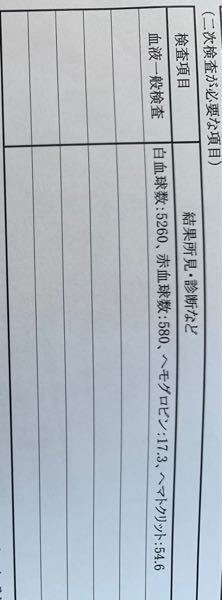 (二次検査が必要な項目)
検査項目 結果所見・診断など
血液一般検査 白血球数:5260、赤血球数:580、ヘモグロビン:17.3、ヘマトクリット:54.6